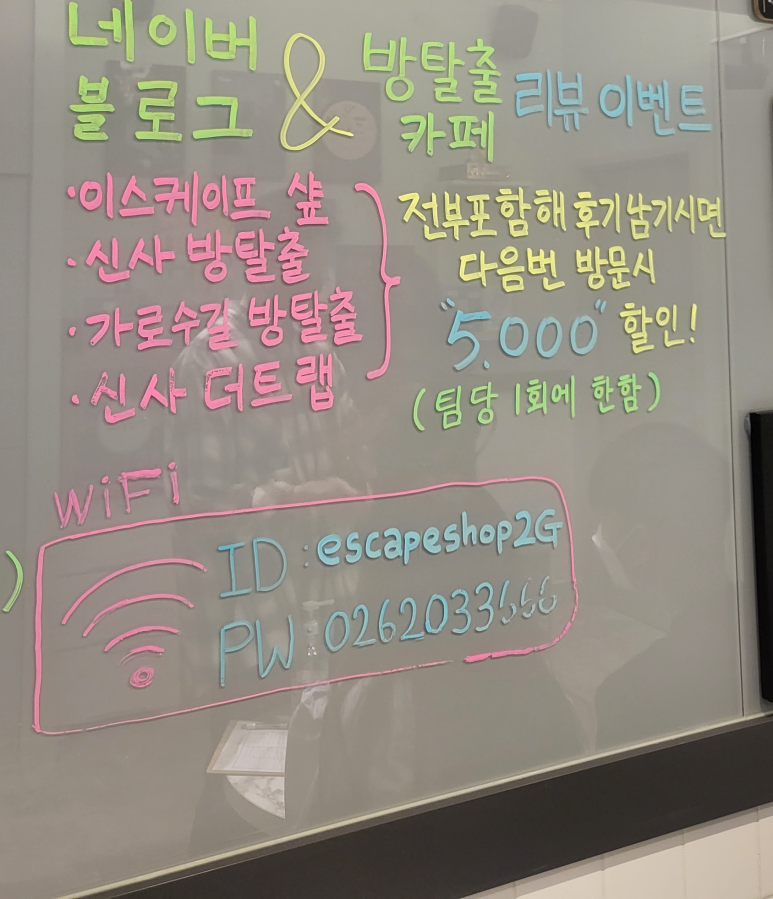 네이버 블로그 & 방탈출 카페 리뷰 이벤트
·이스케이프 샾
·신사 방탈출
·가로수길 방탈출
·신사 더트랩
전부포함해 후기남기시면
다음번 방문시
"5.000" 할인!
(팀당 1회에 한함)
WiFi
ID : escapeshop2G
)